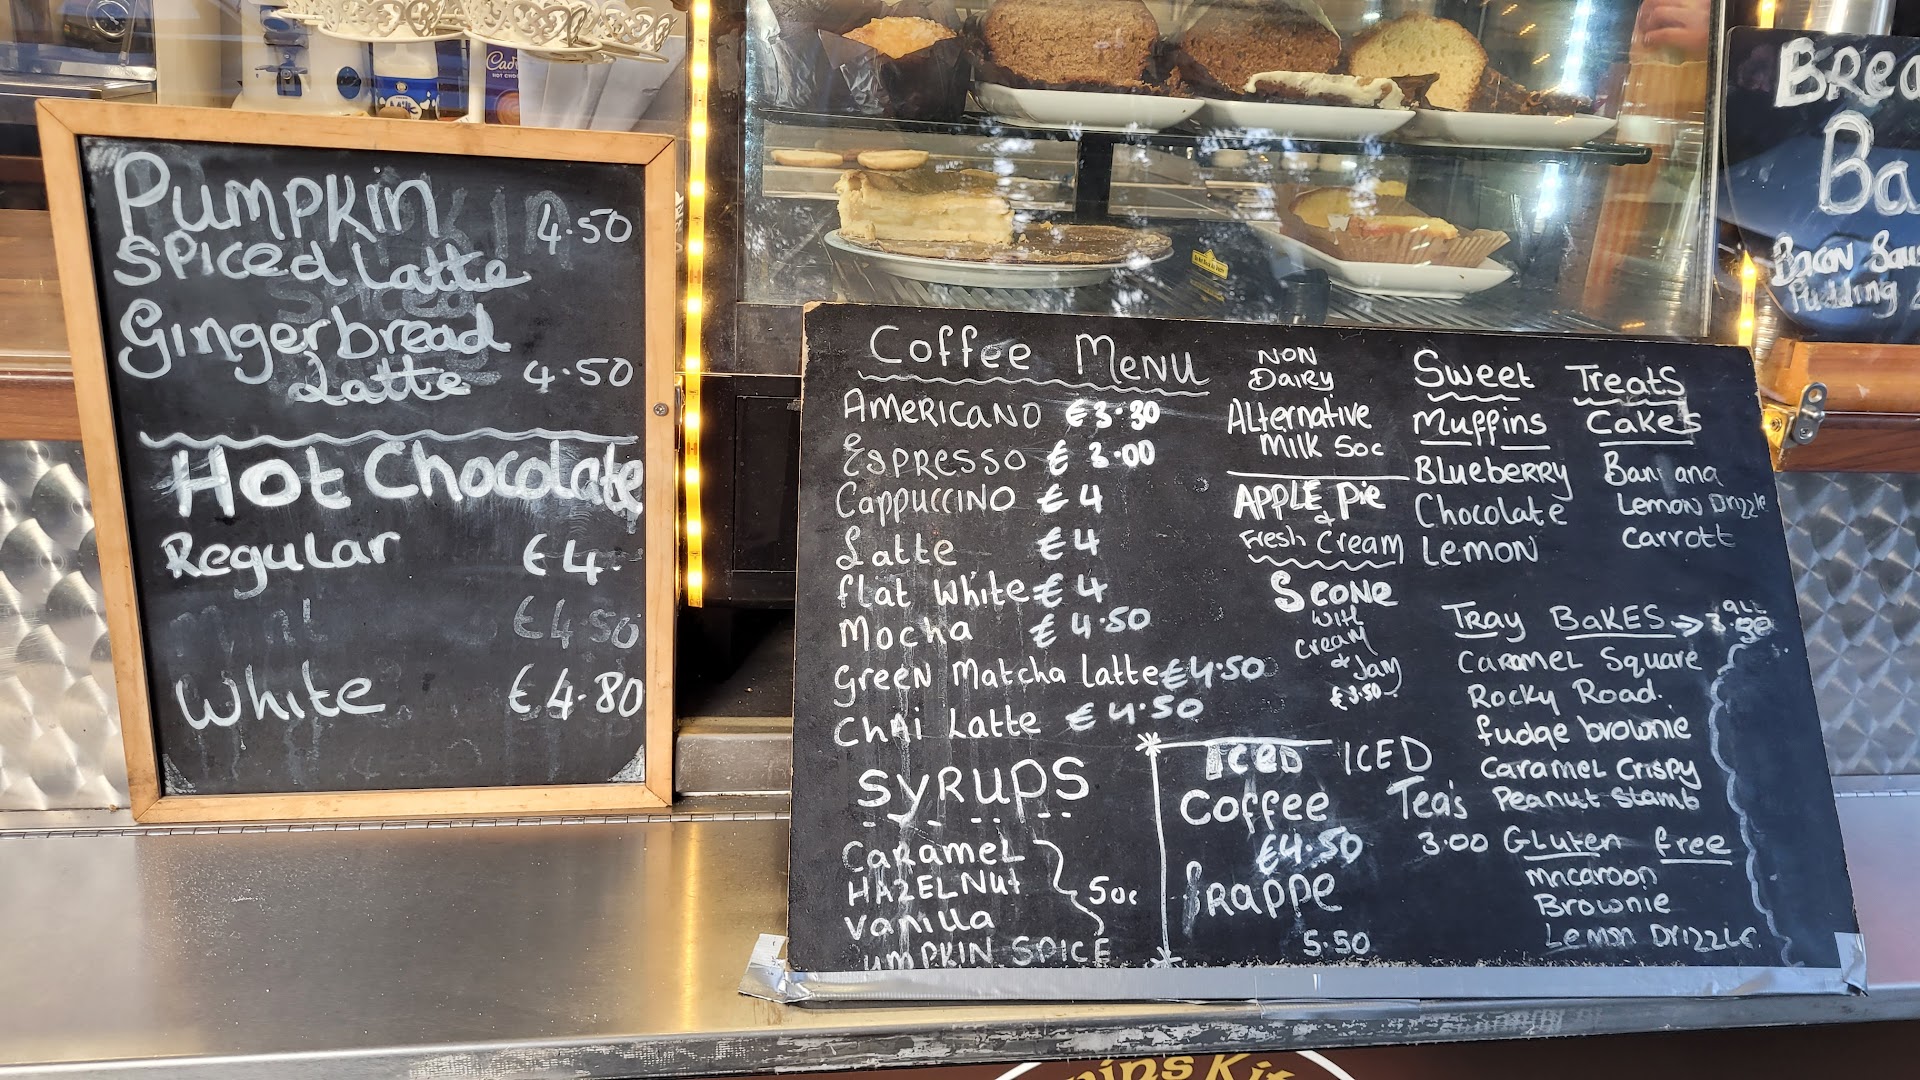 Cad
HOT CHOC
Milk
Pumpkin
Spiced Latte 4.50
Gingerbread
Latte 4.50
Hot Chocolate
Regular €4.
mint €4.50
White €4.80
Coffee Menu
AMERICANO €3.30
Espresso €3.00
Cappuccino €4
Latte €4
flat white €4
Mocha €4.50
Green Matcha Latte €4.50
Chai Latte €4.50
Syrups
Caramel
HAZELNut
Vanilla
50c
umpkin Spice
NON
Dairy
Alternative
Milk 50c
APPLE Pie
&
Fresh Cream
Scone
with
cream
& Jam
€3.50
Iced
Coffee
€4.50
frappe
5.50
ICED
Tea's
3.00
Sweet Treats
Muffins
Blueberry
Chocolate
Lemon
Cakes
Banana
Lemon Drizzle
Carrott
Tray Bakes → all 3.90
Caramel Square
Rocky Road.
fudge brownie
Caramel Crispy
Peanut Stamb
Gluten free
macaroon
Brownie
Lemon Drizzle
Brea
Ba
Bacon Saus
Pudding